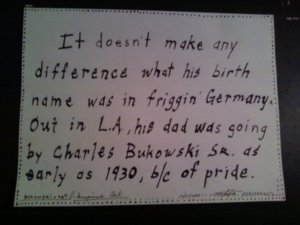 It doesn't make any
difference what his birth
name was in friggin' Germany.
Out in L.A., his dad was going
by Charles Bukowski Sr. as
early as 1930, b/c of pride.